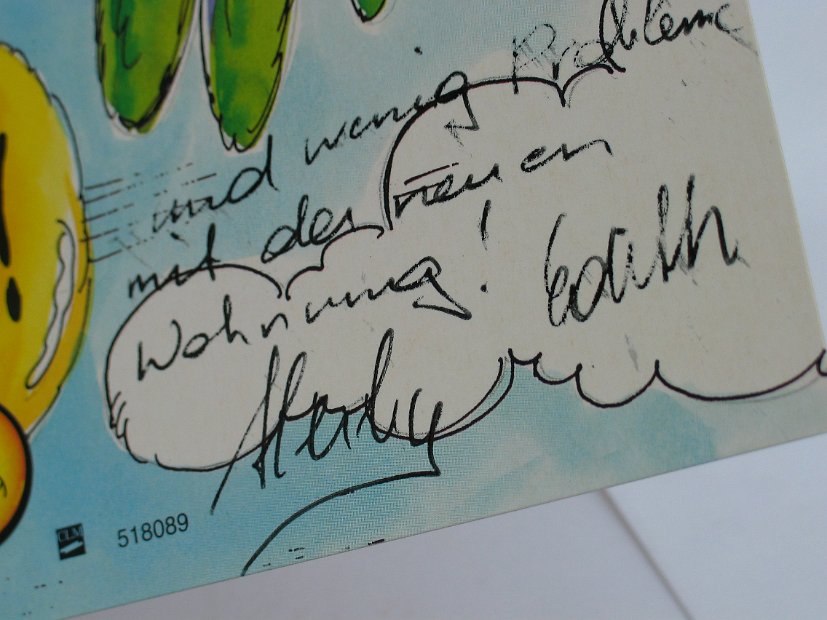 und wenig Probleme
mit der neuen
Wohnung!
Edith
CLM
518089